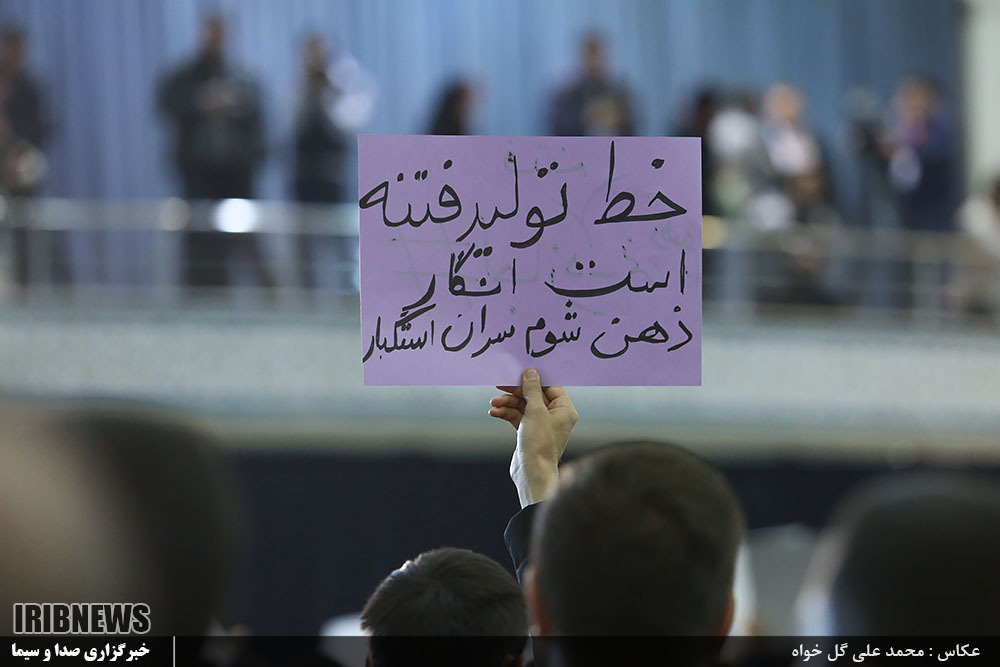 خط تولید فتنه
است انگار
ذهن شوم سران استکبار
IRIBNEWS
خبرگزاری صدا و سیما
عکاس : محمد علی گل خواه